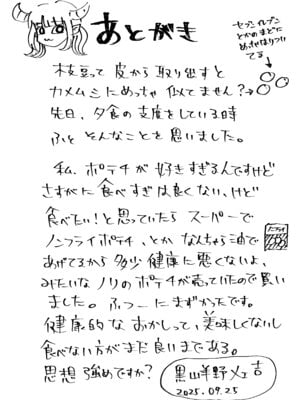 あとがき
セブンイレブン
とかのまどに
めっちゃはりつい
てる
枝豆って皮から取り出すと
カメムシにめっちゃ似てません?→
先日、夕食の支度をしている時
ふと そんなことを思いました。
私、ポテチが好きすぎるんですけど
さすがに食べすぎは良くない、けど
食べたい!と思っていたら スーパーで
ノンフライポテチ、とか なんちゃら油で
あげてるから多少健康に悪くないよ、
みたいなノリのポテチが売っていたので買い
ました。ふつーにまずかったです。
健康的なおかしって、美味しくないし
食べない方がまだ良いまである。
思想強めですか?
黒山羊野メェ吉
2025.09.25